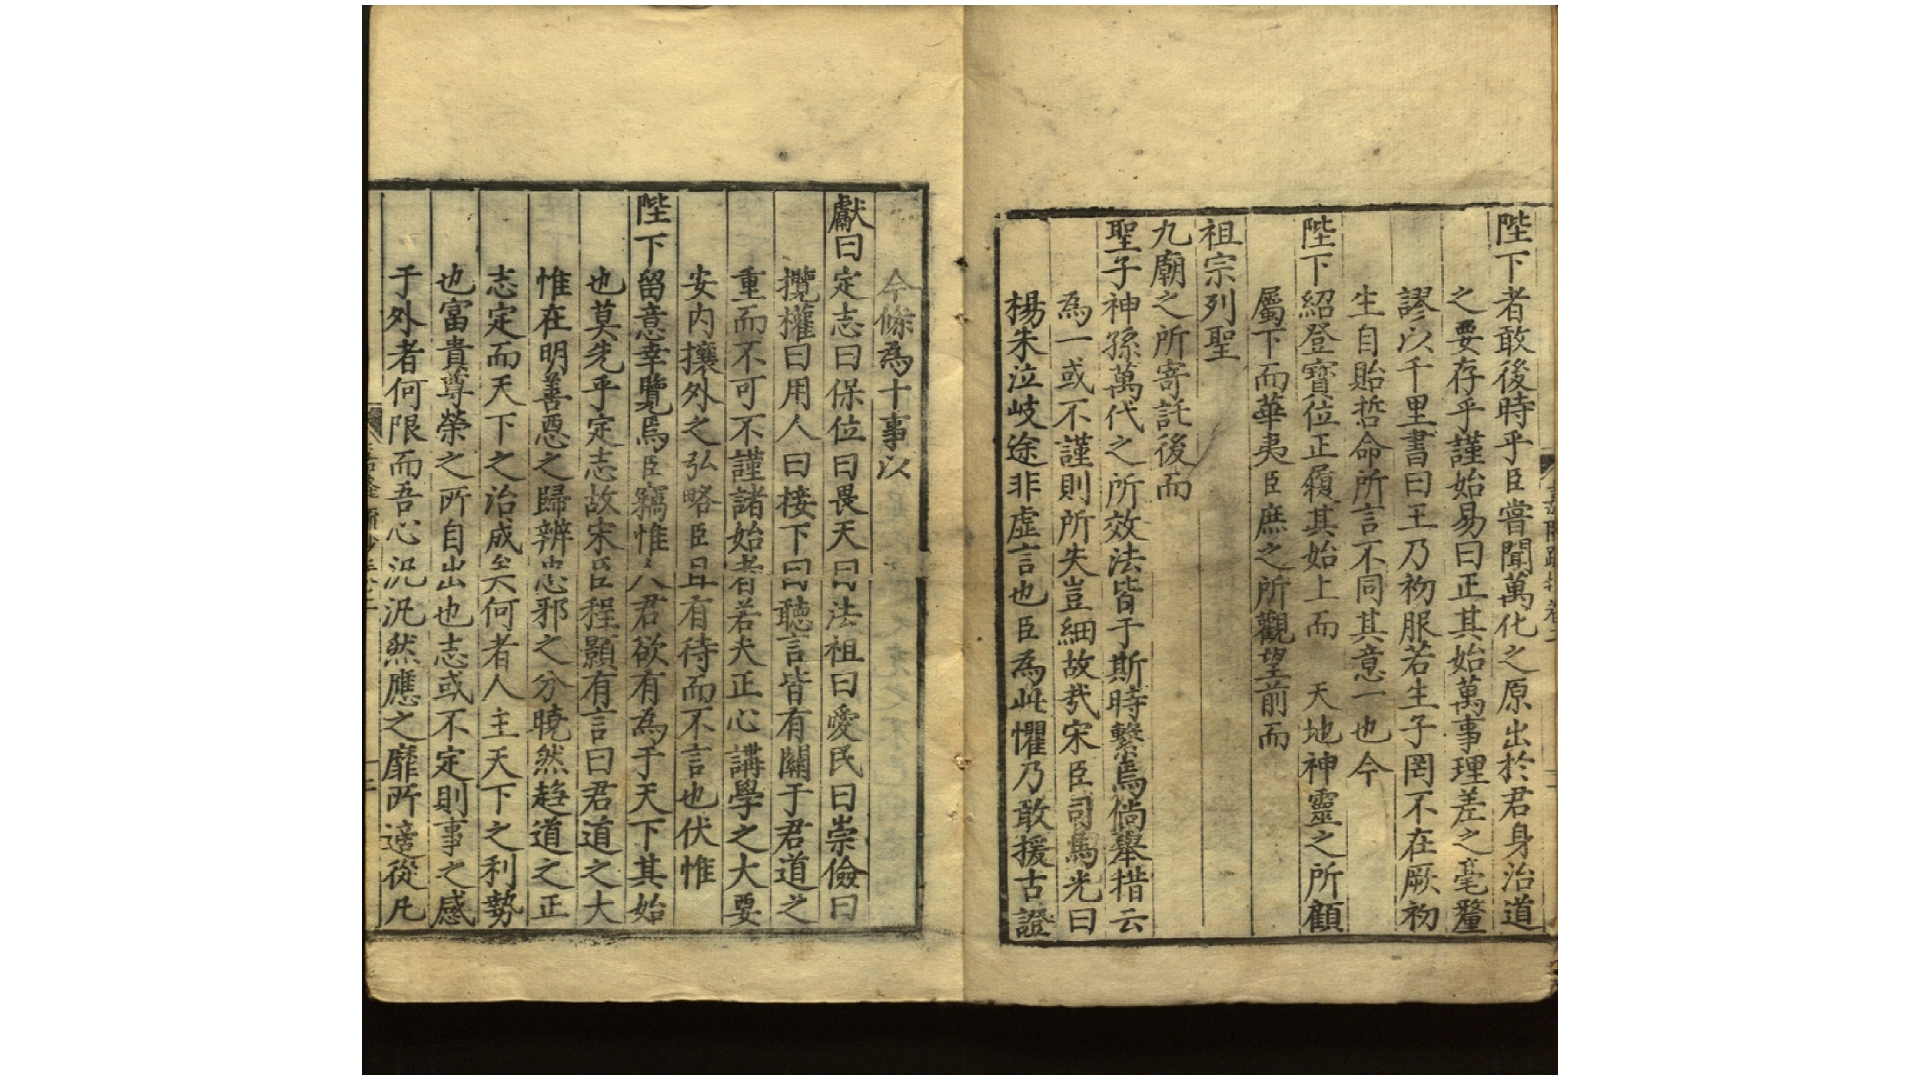 陛下者敢後時乎臣嘗聞萬化之原出於君身治道
之要存乎謹始易曰正其始萬事理差之毫釐
謬以千里書曰王乃初服若生子罔不在厥初
生自貽哲命所言不同其意一也今
陛下紹登寶位正履其始上而 天地神靈之所顧
屬下而華夷臣庶之所觀望前而
祖宗列聖
九廟之所寄託後而
聖子神孫萬代之所效法皆于斯時繫焉倘舉措云
為一或不謹則所失豈細故㢤宋臣司馬光曰
楊朱泣岐途非虛言也臣為此懼乃敢援古證
今條為十事以
獻曰定志曰保位曰畏天曰法祖曰愛民曰崇儉曰
攬權曰用人曰接下曰聽言皆有關于君道之
重而不可不謹諸始者若夫正心講學之大要
安內攘外之弘略臣且有待而不言也伏惟
陛下留意幸覽焉臣竊惟人君欲有為于天下其始
也莫先乎定志故宋臣程顥有言曰君道之大
惟在明善惡之歸辨忠邪之分曉然趨道之正
志定而天下之治成矣何者人主天下之利勢
也富貴尊榮之所自出也志或不定則事之感
于外者何限而吾心汎汎然應之靡所適從凡